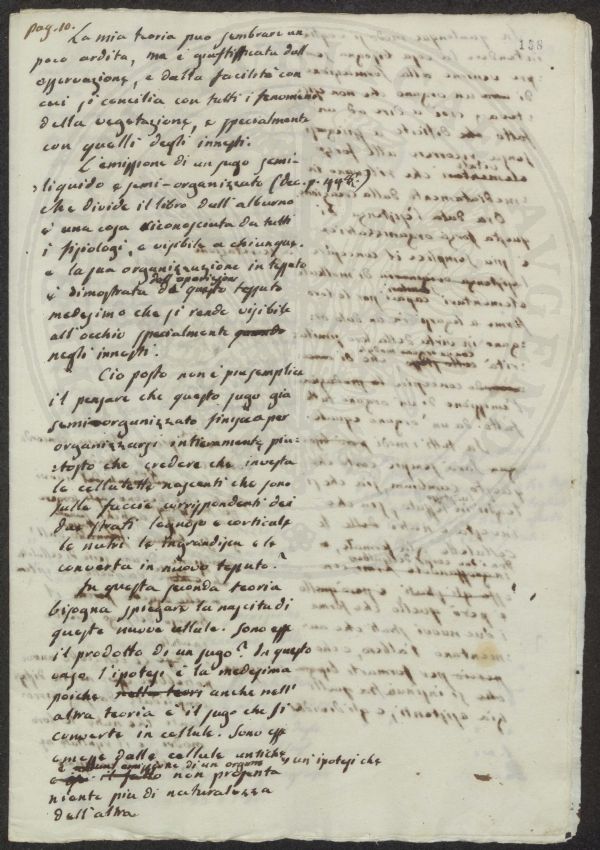 pag. 10.
158
La mia teoria può sembrare un
poco ardita, ma è giustificata dall'
osservazione, e dalla facilità con
cui si concilia con tutti i fenomeni
della vegetazione, e specialmente
con quelli degli innesti.
L'emissione di un sugo semi-
liquido e semi-organizzato (Dec. p.
che divide il libro dall'alburno
è una cosa riconosciuta da tutti
i fisiologi, e visibile a chiunque,
e la sua organizzazione in tessuto
dall'apparizione
è dimostrata da questo tessuto
medesimo che si rende visibile
all'occhio specialmente quando
negli innesti.
Ciò posto non è più semplice
il pensare che questo sugo già
semi-organizzato finisca per
organizzarsi intieramente, piu-
-tosto che credere che investa
le cellulette nascenti che sono
sulle faccie corrispondenti dei
due strati legnoso e corticale
le nutri le ingrandisca e le
converta in nuovo tessuto?
In questa seconda teoria
bisogna spiegare la nascita di
queste nuove cellule. Sono esse
il prodotto di un sugo? In questo
caso l'ipotesi è la medesima
poiche nella teori anche nell'
altra teoria è il sugo che si
converte in cellule. Sono esse
emesse dalle cellule antiche
emissione di un organo un'ipotesi che
il fatto non presenta
niente più di naturalezza
dell'altra